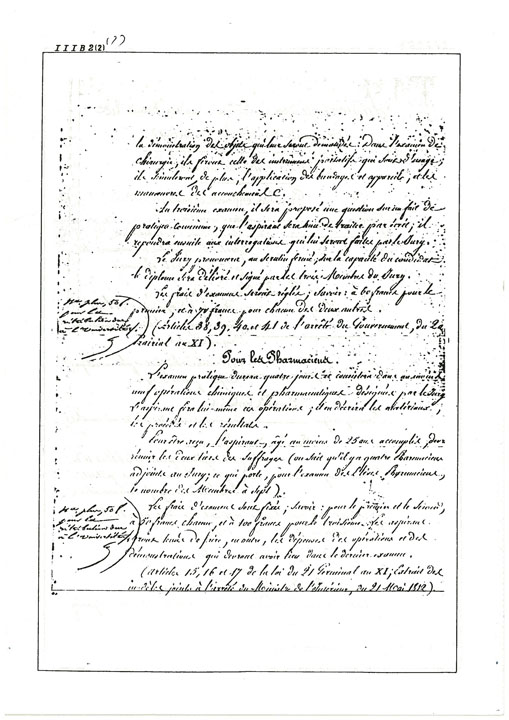 IIIB2(2) (7)
la démonstration des objets qui leur seront demandés. Dans l'examen de
chirurgie, ils feront celle des instrumens portatifs qui sont d'usage;
ils simuleront, de plus, l'application des bandages et appareils, et les
manœuvres des accouchemens.
Au troisième examen, il sera proposé une question sur un fait de
pratique commune, que l'aspirant sera tenu de traiter par écrit; il
répondra ensuite aux interrogations qui lui seront faites par le Jury.
Le Jury prononcera, au scrutin fermé, sur la capacité du candidat
le diplôme sera délivré et signé par les trois Membres du Jury.
Les frais d'examens seront réglés; savoir: à 60 francs pour le
premier, et à 70 francs pour chacun des deux autres.
Non plus, 50 f.
pour les
rétributions dues
à l'Université.
(Articles 38, 39, 40 et 41 de l'arrêté du Gouvernement, du 20
Prairial an XI).
Pour les Pharmaciens.
L'examen pratique durera quatre jours et consistera dans au moins
neuf opérations chimiques et pharmaceutiques désignées par le Jury
L'aspirant fera lui-même ces opérations; il en décrira les matériaux,
les procédés et les résultats.
Pour être reçu, l'aspirant, âgé au moins de 25 ans accomplis, devra
réunir les deux tiers des suffrages (on sait qu'il y a quatre Pharmaciens
adjoints au Jury; ce qui porte, pour l'examen des Élèves Pharmaciens,
le nombre des Membres à Sept).
Les frais d'examens sont fixés; savoir: pour le premier et le second,
à 50 francs chacun, et à 100 francs pour le troisième. Les aspirans
seront tenus de faire, en outre, les dépenses des opérations et des
démonstrations qui devront avoir lieu dans le dernier examen.
Non plus, 50 f.
pour les
rétributions dues
à l'Université.
(articles 15, 16 et 17 de la loi du 21 Germinal an XI; Extrait des
modèles joints à l'arrêté du Ministre de l'Intérieur, du 21 Mai 1812).